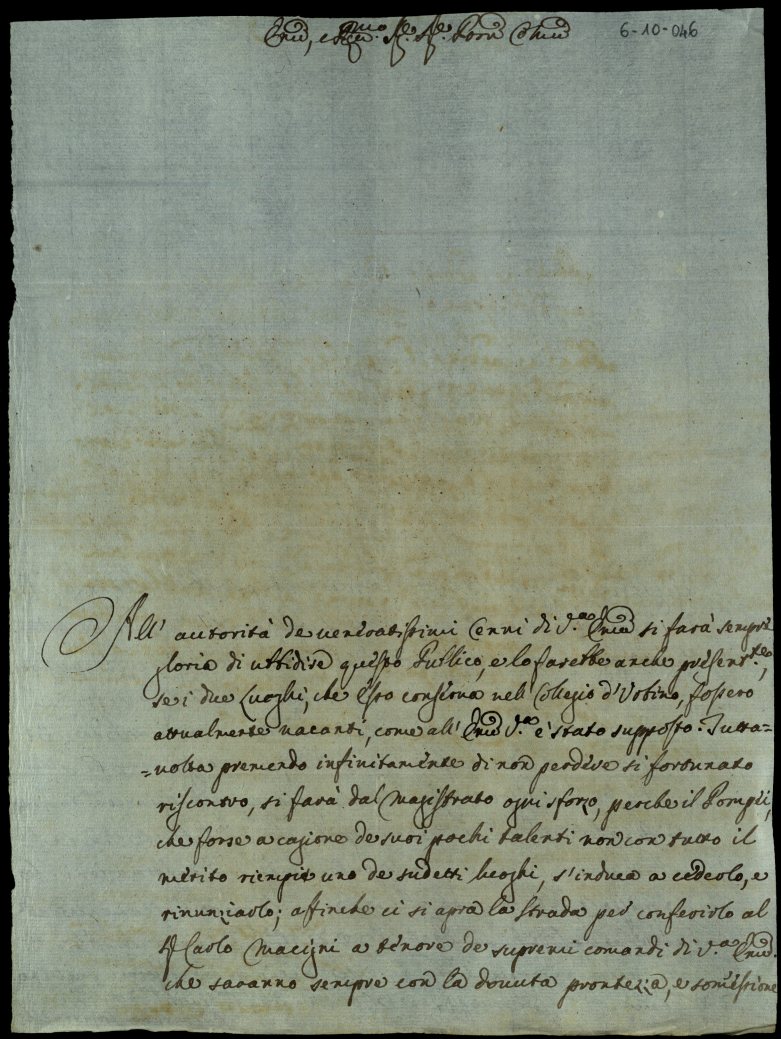 Emin, e Rmo Sig. Sig. Pron Colmo
6-10-046
All' autorità de veneratissimi cenni di V.a Emza si farà sempre
gloria di ubbidire questo Publico, e lo farebbe anche presentte,
se i due Luoghi, che esso conferisce nel Collegio d'Urbino, fossero
attualmente vacanti, come all' Emza V.a è stato supposto. Tutta=
=volta premendo infinitamente di non perdere si fortunato
riscontro, si farà dal Magistrato ogni sforzo, perche il Pompei,
che forse a cagione de suoi pochi talenti non con tutto il
merito riempie uno de sudetti luoghi, s'induca a cederlo, e
rinunziarlo; affinche ci si apra la strada per conferirlo al
Carlo Macigni a tenore de supremi comandi di V.a Emza.
che saranno sempre con la dovuta prontezza, e somissione